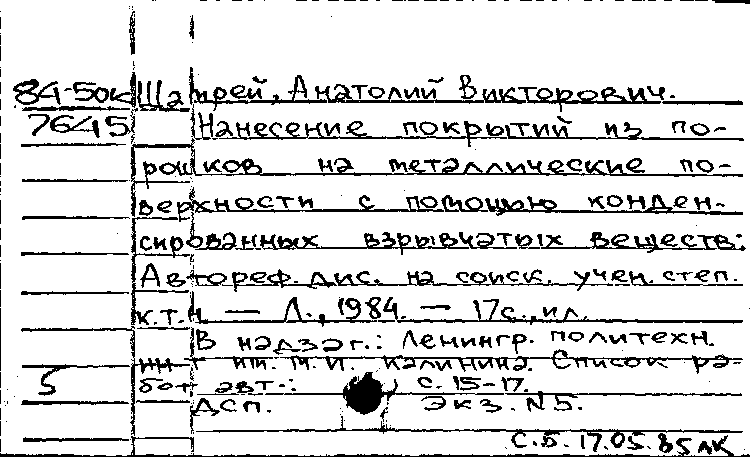 84-50к Шатрей, Анатолий Викторович.
7645 Нанесение покрытий из по-
рошков на металлические по-
верхности с помощью конден-
сированных взрывчатых веществ:
Автореф. дис. на соиск. учен. степ.
к.т.н. — Л., 1984. — 17 с., ил.
В надзаг.: Ленингр. политехн.
ин-т им. М.И. Калинина. Список ра-
5 бот авт.: с. 15-17.
ДСП. Экз. N5.
С.Б. 17.05.85 ЛК